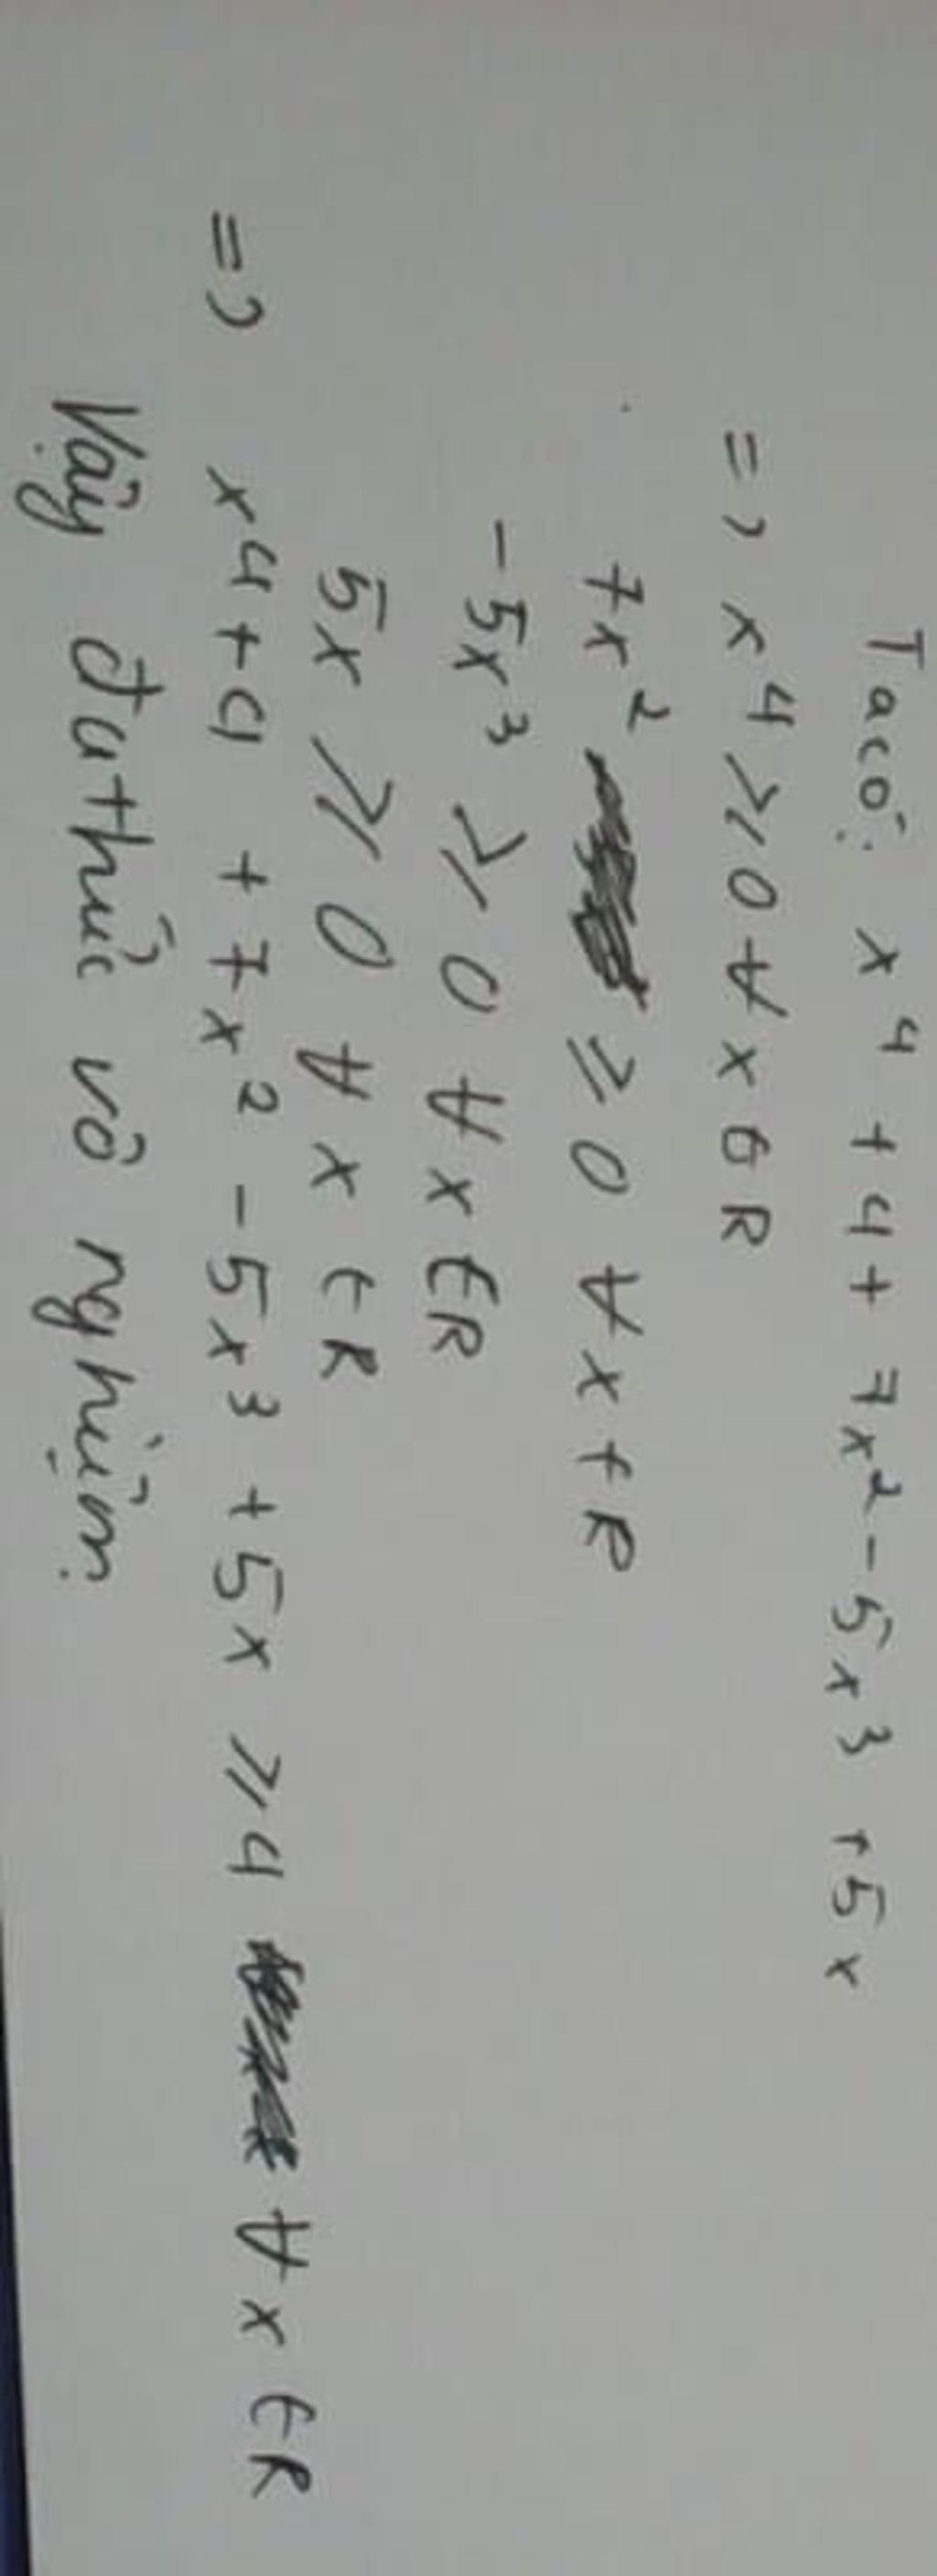 Ta có: x⁴ + 4 + 7x² - 5x³ + 5x
=> x⁴ ≥ 0 ∀ x ∈ R
7x² ≥ 0 ∀ x ∈ R
- 5x³ ≥ 0 ∀ x ∈ R
5x ≥ 0 ∀ x ∈ R
=> x⁴ + 4 + 7x² - 5x³ + 5x ≥ 4 ∀ x ∈ R
Vậy đa thức vô nghiệm.